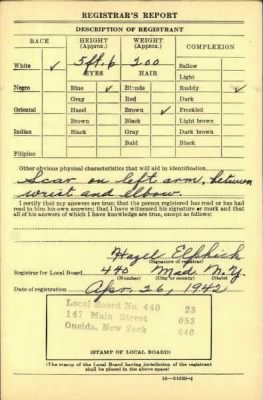 REGISTRAR'S REPORT
DESCRIPTION OF REGISTRANT
RACE HEIGHT (Approx.) WEIGHT (Approx.) COMPLEXION
White ✓ 5 ft. 6 200 Sallow
EYES HAIR Light
Negro Blue ✓ Blonde Ruddy ✓
Gray Red Dark
Oriental Hazel Brown ✓ Freckled
Brown Black Light brown
Indian Black Gray Dark brown
Bald Black
Filipino
Other obvious physical characteristics that will aid in identification
Scar on left arm, between
wrist and elbow.
I certify that my answers are true; that the person registered has read or has had
read to him his own answers; that I have witnessed his signature or mark and that
all of his answers of which I have knowledge are true, except as follows:
Hazel Elphick
(Signature of registrar)
Registrar for Local Board 440 Mad. N.Y.
(Number) (City or county) (State)
Date of registration Apr. 26, 1942
Local Board No. 440 23
147 Main Street 053
Oneida, New York 440
(STAMP OF LOCAL BOARD)
(The stamp of the Local Board having jurisdiction of the registrant
shall be placed in the above space)